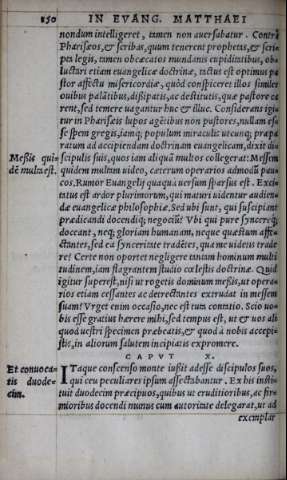 150 IN EVANG. MATTHAEI
nondum intelligeret, tamen non auersabatur. Contrà
Pharisæos, & scribas, quum tenerent prophetas, & scri-
pta legis, tamen obcæcatos mundanis cupiditatibus, obs
luctari etiam euangelicæ doctrinæ, tactus est optimus pa
stor affectu misericordiæ, quòd conspiceret illos similes
ouibus palātibus, dissipatis, ac destitutis, quæ pastore ca
rent, sed temere uagantur huc & illuc. Considerans igi-
tur in Pharisæis lupos agētibus non pastores, nullam esse
se spem gregis, iamq; populum miraculis utcunq; præpa
ratum ad accipiendam doctrinam euangelicam, dixit di-
Meßis qui scipulis suis, quos iam aliquā multos collegerat: Messem
dē multa est. quidem multam uideo, cæterum operarios admodū pau
cos. Rumor Euangelij quaqua uersum sparsus est. Exci-
tatus est ardor plurimorum, qui mauri uidentur audien-
dæ euangelicæ philosophiæ. Sed ubi sunt, qui suscipiant
prædicandi docendiq; negociū? Vbi qui pure synceréq;
doceant, neq; gloriam humanam, neque quæstum affe-
ctantes, sed ea synceritate tradētes, qua me uidetis trade
re? Certe non oportet negligere tantam hominum mul-
titudinem, iam flagrantem studio cœlestis doctrinæ. Quid
igitur superest, nisi ut rogetis dominum meßis, ut opera-
rios etiam cessantes ac detrectantes extrudat in messem
suam? Vrget enim occasio, nec est cum contatio. Scio uo-
bis esse gratius hærere mihi, sed tempus est, ut & uos ali
quod uestri specimen præbeatis, & quod à nobis accepi-
stis, in aliorum salutem incipiatis expromere.
CAPVT X.
Et conuoca- ITaque conscenso monte iußit adesse discipulos suos,
tis duode- qui ceu peculiares ipsum assectabantur. Ex his insti-
cim. tuit duodecim præcipuos, quibus ut eruditioribus, ac fir
mioribus docendi munus cum autoritate delegarat, ut ad
exemplar